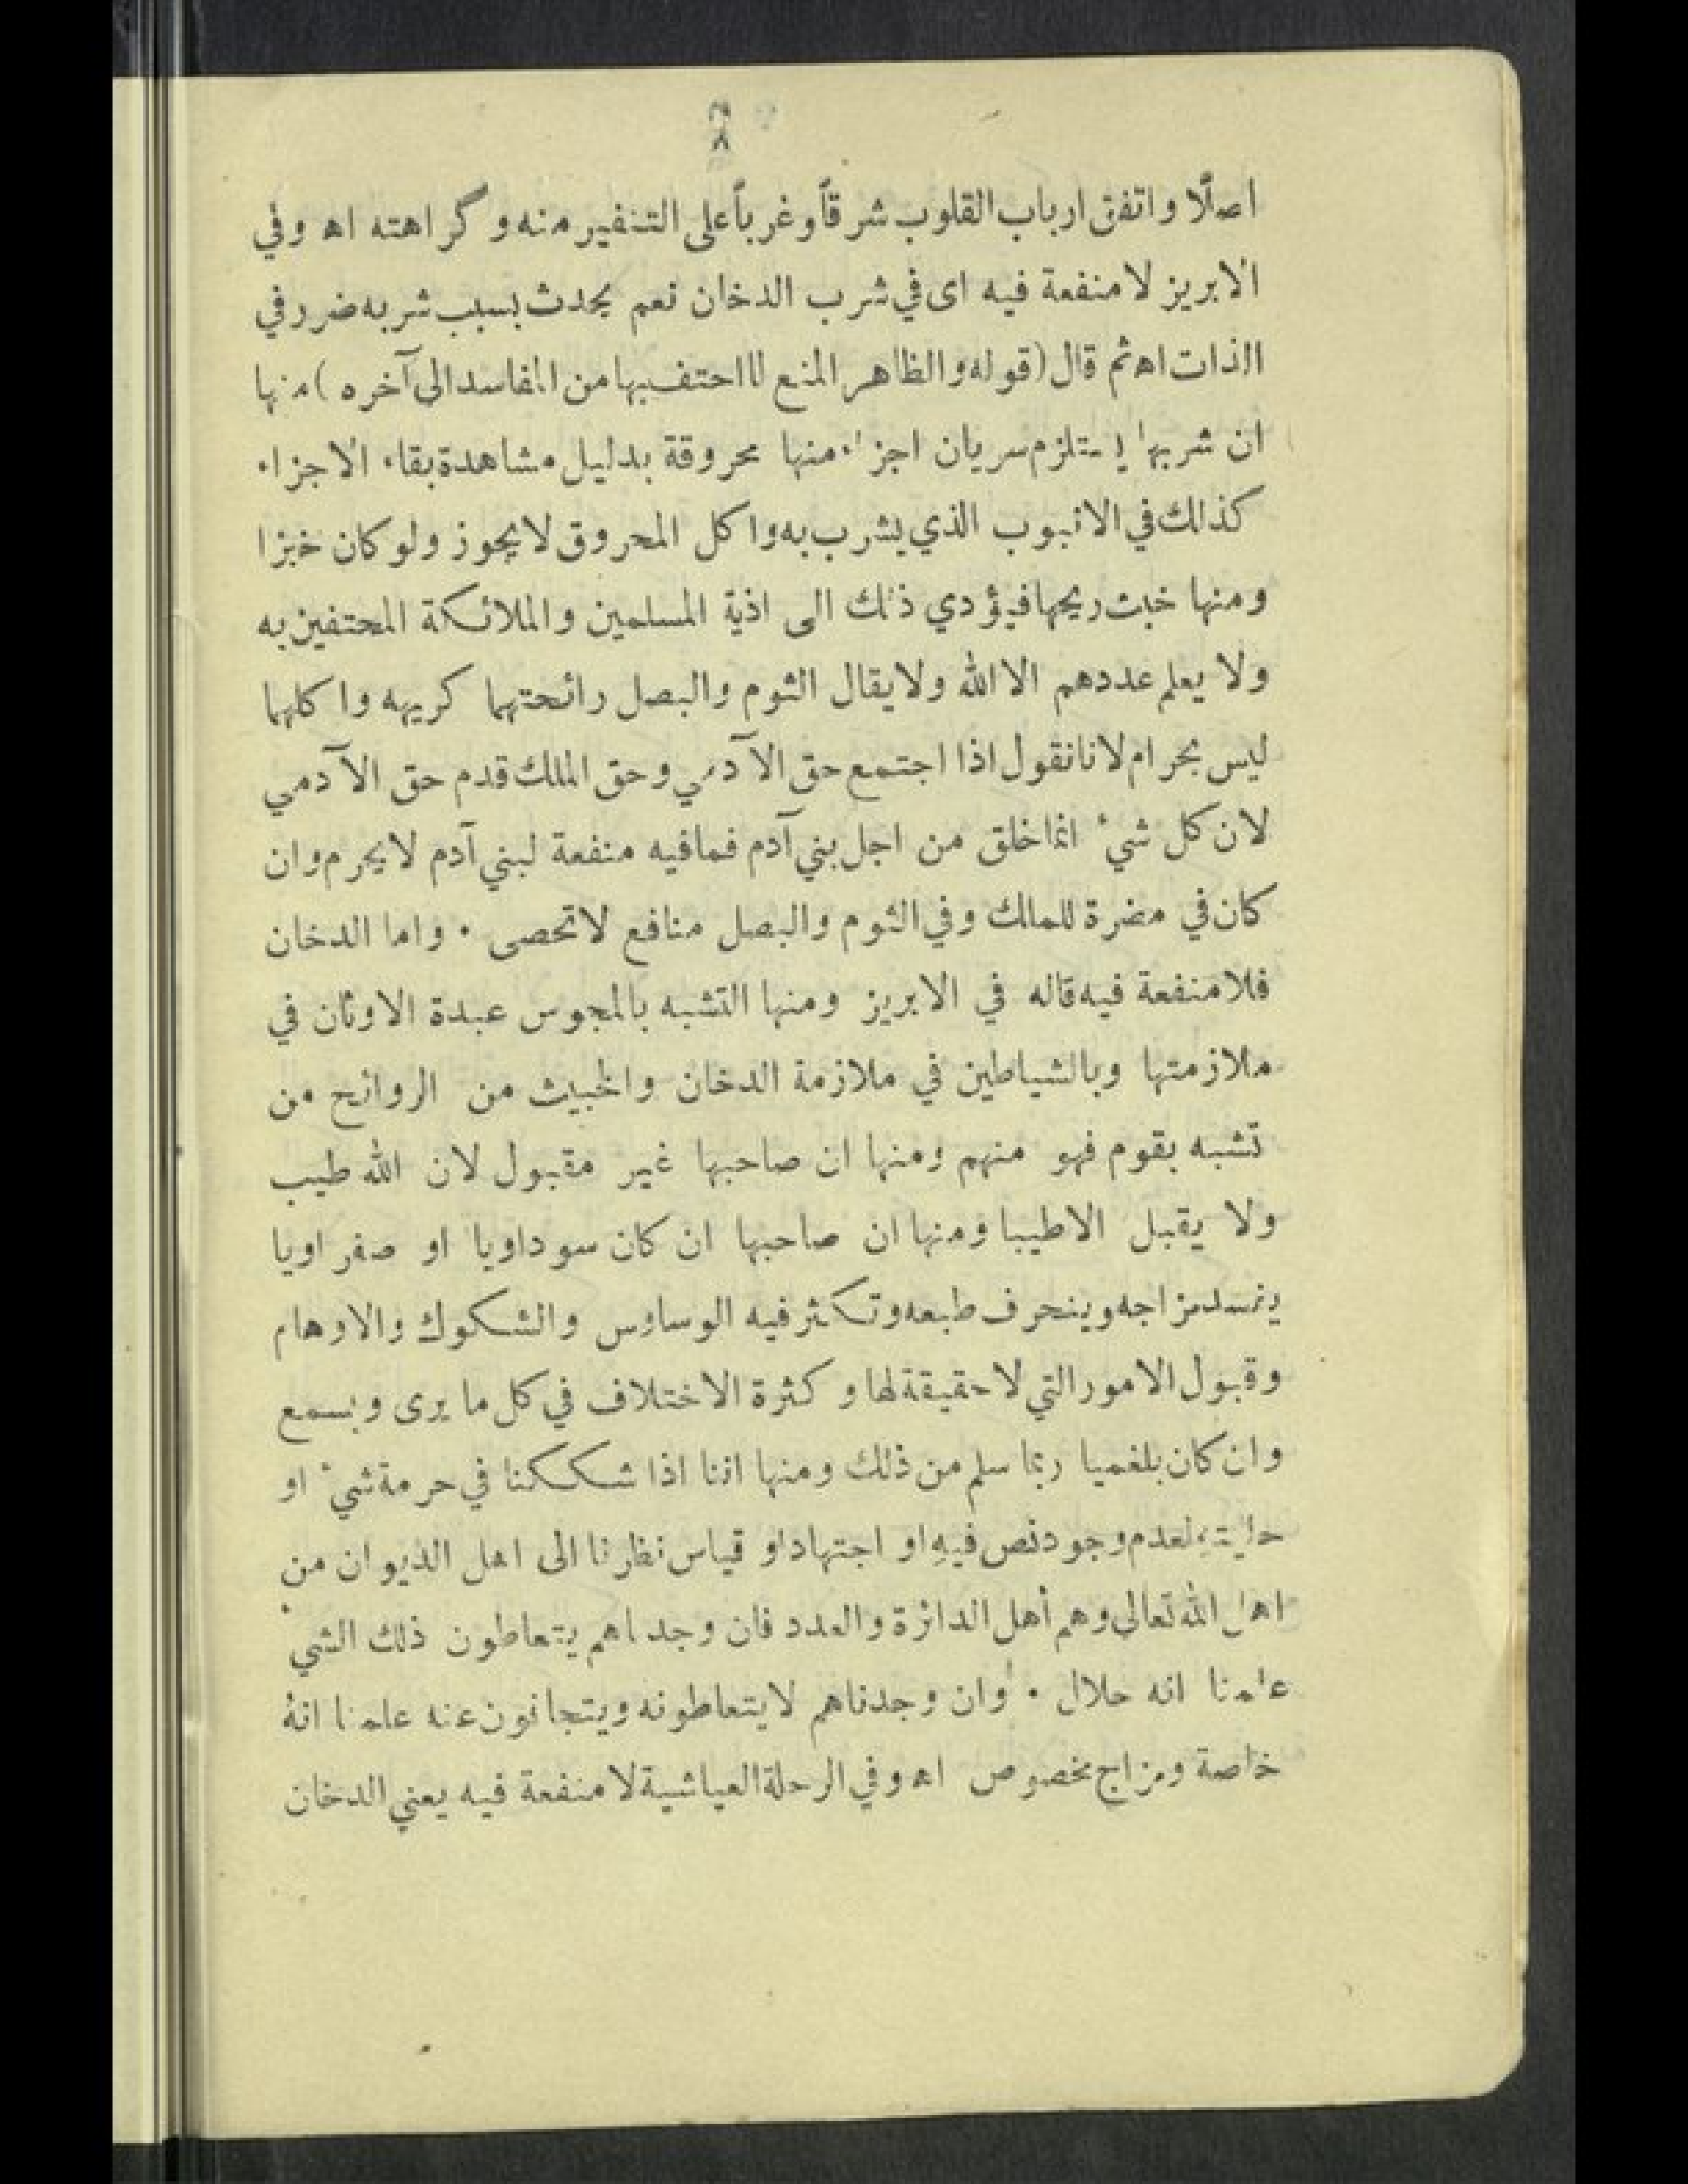 اصلًا واتفق ارباب القلوب شرقاً وغرباً على التنفير منه وكراهته اه وفي
الابريز لا منفعة فيه اى في شرب الدخان نعم يحدث بسبب شربه ضرر في
الذات اه ثم قال (قوله والظاهر المنع لما احتف بها من المفاسد الى آخره) منها
ان شربها يستلزم سريان اجزاء منها محروقة بدليل مشاهدة بقاء الاجزاء
كذلك في الانبوب الذي يشرب به واكل المحروق لا يجوز ولو كان خبزا
ومنها خبث ريحها فيؤدي ذلك الى اذية المسلمين والملائكة المحتفين به
ولا يعلم عددهم الا الله ولا يقال الثوم والبصل رائحتهما كريهه واكلهما
ليس بحرام لانا نقول اذا اجتمع حق الآدمي وحق الملك قدم حق الآدمي
لان كل شيء انما خلق من اجل بني آدم فما فيه منفعة لبني آدم لا يحرم وان
كان في مضرة للملك وفي الثوم والبصل منافع لا تحصى ٠ واما الدخان
فلا منفعة فيه قاله في الابريز ومنها التشبه بالمجوس عبدة الاوثان في
ملازمتها وبالشياطين في ملازمة الدخان والخبيث من الروائح من
تشبه بقوم فهو منهم ومنها ان صاحبها غير مقبول لان الله طيب
ولا يقبل الا طيبا ومنها ان صاحبها ان كان سوداويا او صفراويا
يفسد مزاجه وينحرف طبعه وتكثر فيه الوساوس والشكوك والاوهام
وقبول الامور التي لا حقيقة لها وكثرة الاختلاف في كل ما يرى ويسمع
وان كان بلغميا ربما سلم من ذلك ومنها اننا اذا شككنا في حرمة شيء او
حليته لعدم وجود نص فيهِ او اجتهاد او قياس نظرنا الى اهل الديوان من
اهل الله تعالى وهم أهل الدائرة والعدد فان وجدناهم يتعاطون ذلك الشيء
علمنا انه حلال ٠ وان وجدناهم لا يتعاطونه ويتجانون عنه علمنا انهُ
خاصة ومزاج مخصوص اه وفي الرحلة العياشية لا منفعة فيه يعني الدخان